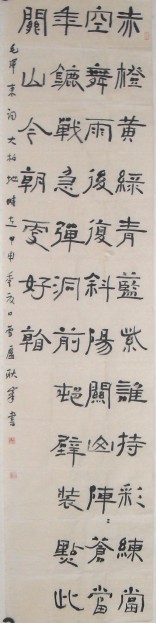 赤橙黄綠青藍紫誰持彩練當
空舞雨後復斜陽關山陣：蒼當
年鏖戰急彈洞前邨壁裝點此
關山今朝更好看
毛澤東詞大柏地時在甲申
書